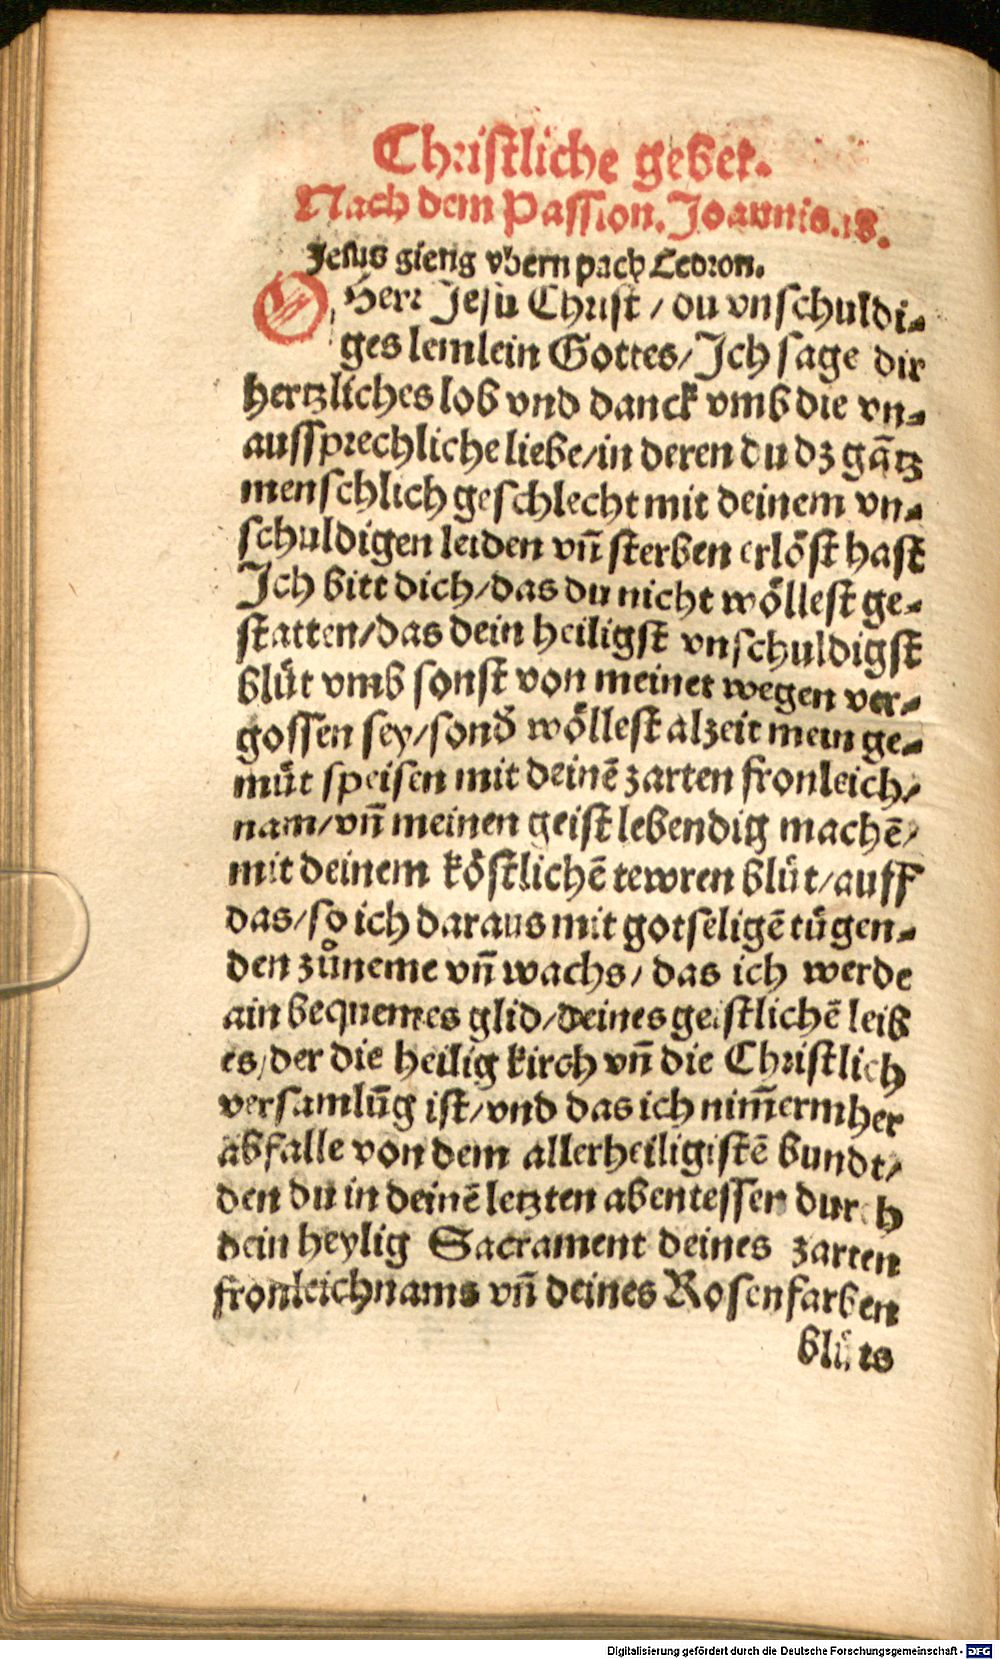 Christliche gebet.
Nach dem Passion. Joannis. 18.
Jesus gieng vbern pach Cedron.
O Herr Jesu Christ / du vnschuldi⸗
ges lemlein Gottes / Ich sage dir
hertzliches lob vnd danck vmb die vn⸗
aussprechliche liebe / in deren du dz gātz
menschlich geschlecht mit deinem vn⸗
schuldigen leiden vn̄ sterben erlöst hast
Ich bitt dich / das du nicht wöllest ge⸗
statten / das dein heiligst vnschuldigst
blůt vmb sonst von meinet wegen ver⸗
gossen sey / sond̕ wöllest alzeit mein ge⸗
můt speisen mit deinē zarten fronleich /
nam / vn̄ meinen geist lebendig machē /
mit deinem köstlichē tewren blůt / auff
das / so ich daraus mit gotseligē tůgen⸗
den zůneme vn̄ wachs / das ich werde
ain bequemes glid / deines geistlichē leib
es / der die heilig kirch vn̄ die Christlich
versamlūg ist / vnd das ich nim̄ermher
abfalle von dem allerheiligistē bundt /
den du in deinē letzten abentessen durch
dein heylig Sacrament deines zarten
fronleichnams vn̄ deines Rosenfarben
blůts
Digitalisierung gefördert durch die Deutsche Forschungsgemeinschaft - DFG